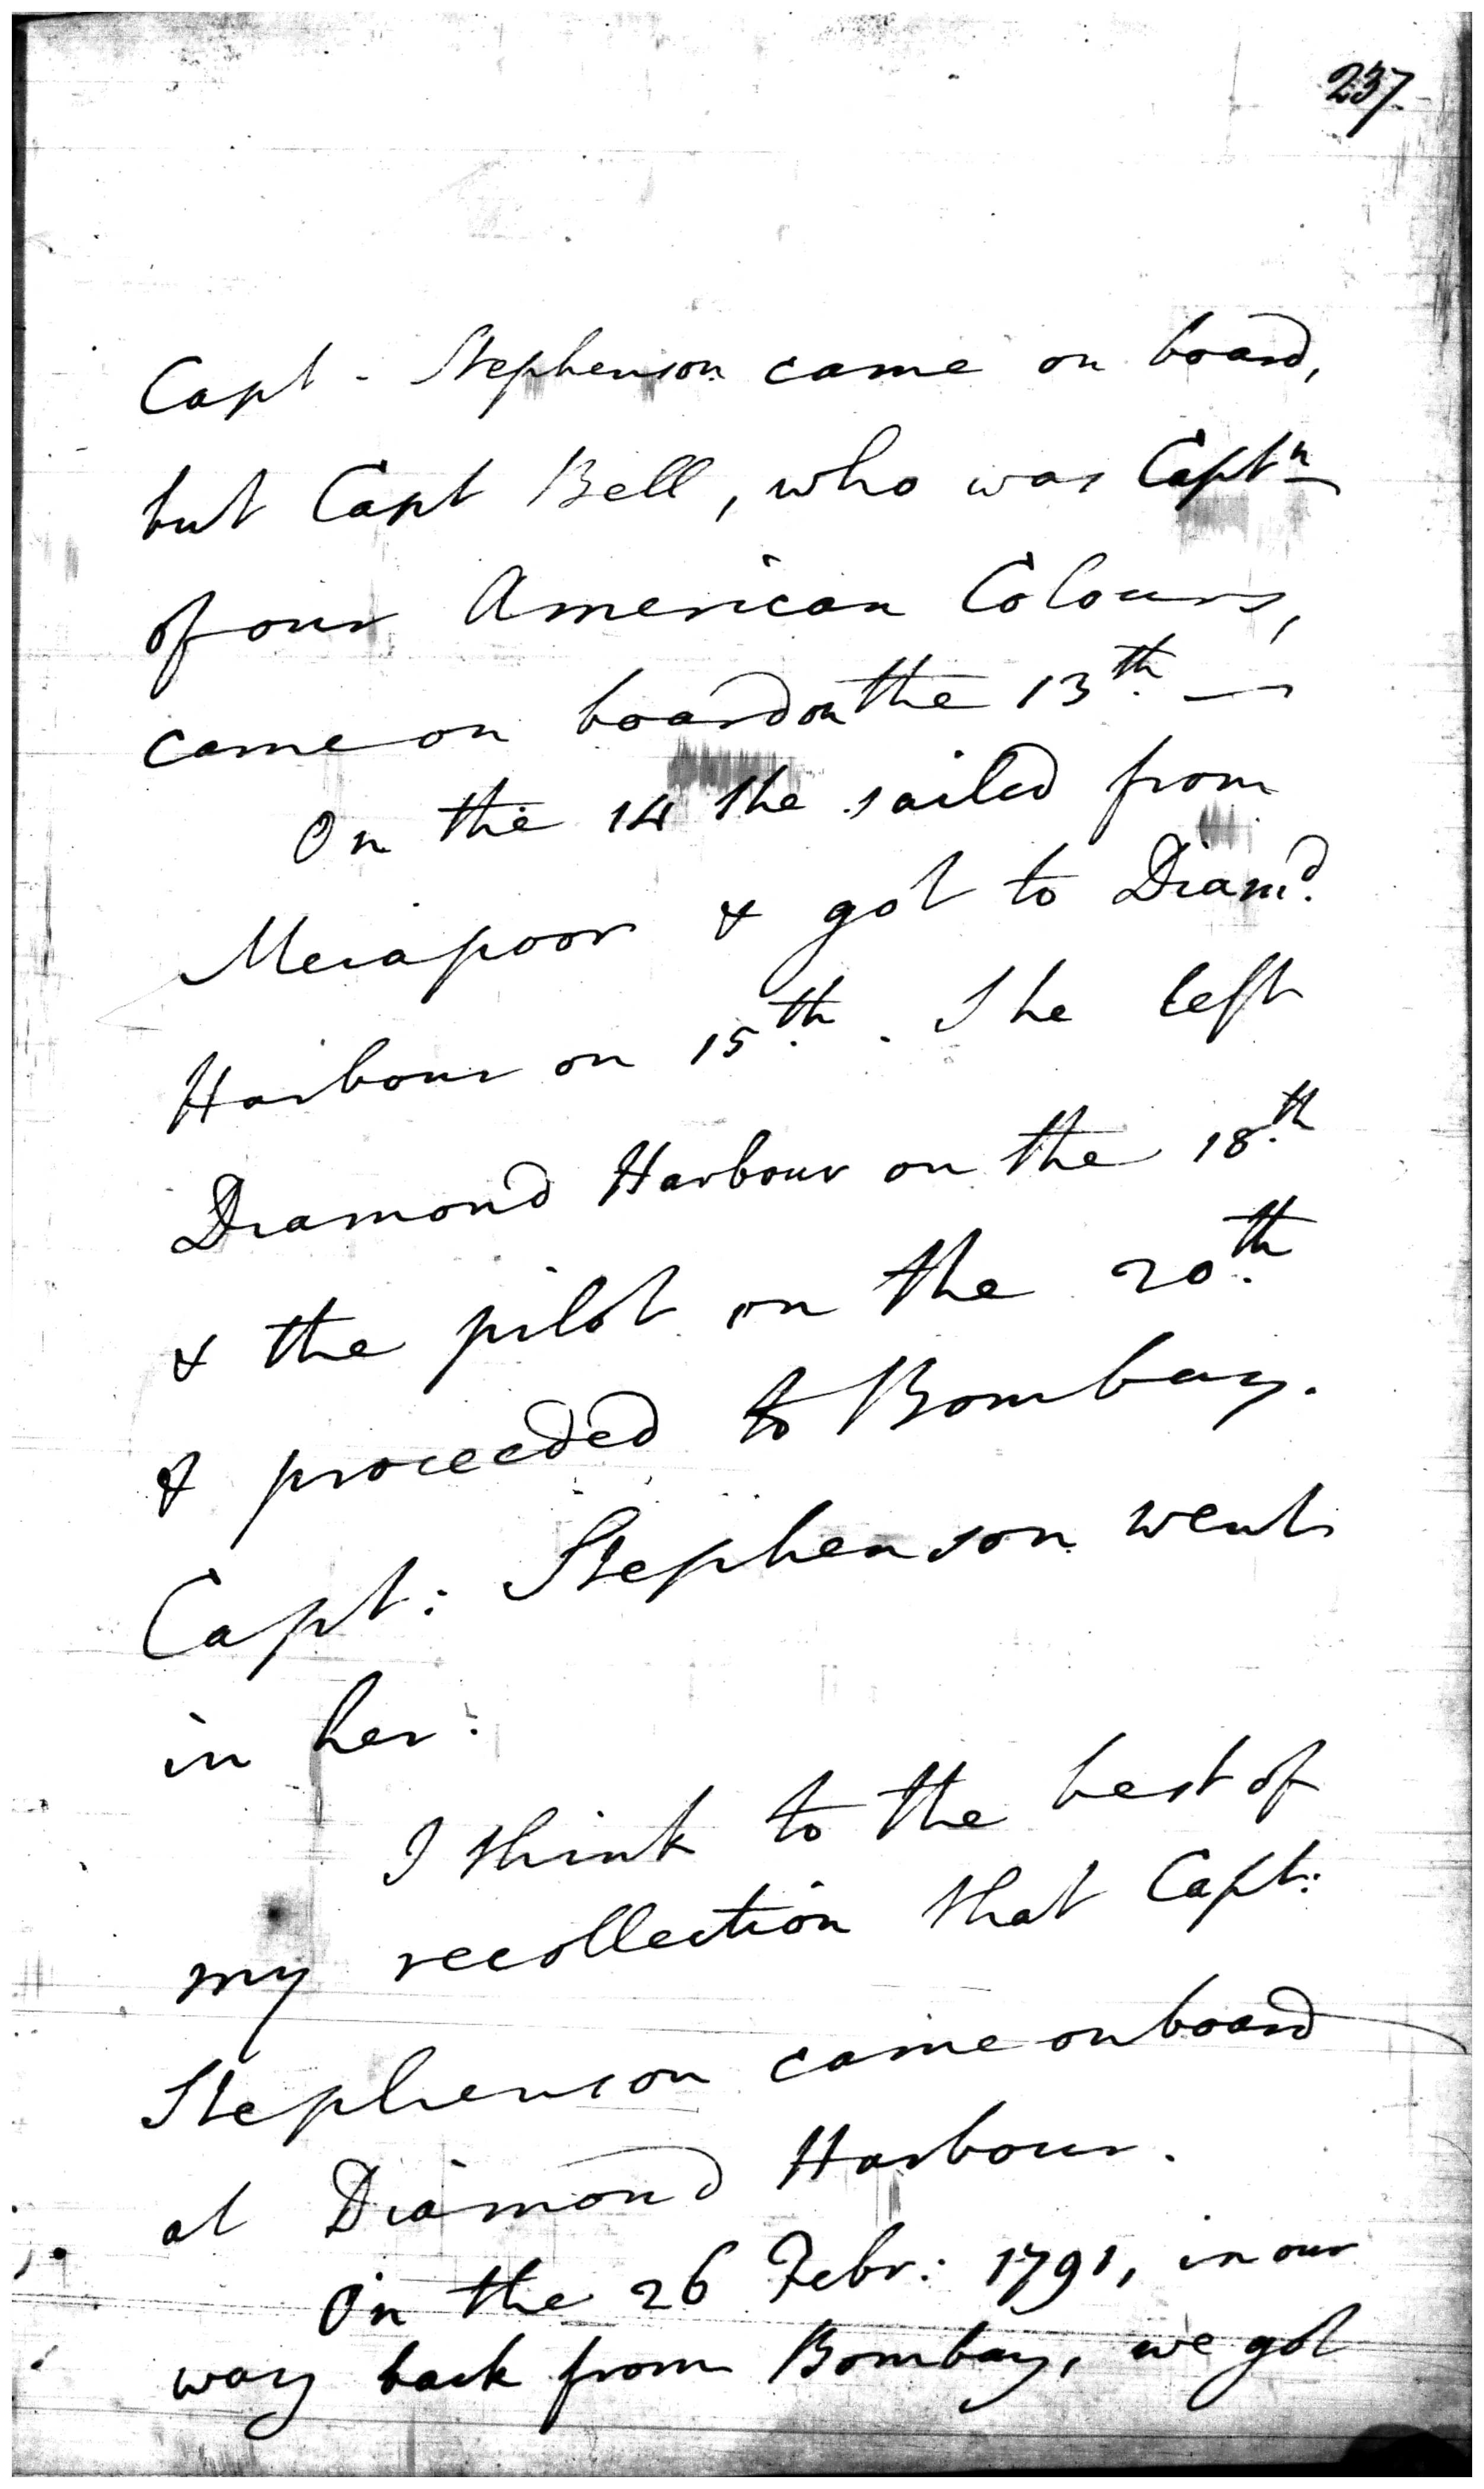 237
Capt - Stephenson came on board,
but Capt Bell, who was Captn
of our American Colours,
came on board on the 13th. —
On the 14 She sailed from
Merapoor & got to Diamd.
Harbour on 15th. She left
Diamond Harbour on the 18th
& the pilot on the 20th
& proceeded to Bombay.
Capt: Stephenson went
in her.
I think to the best of
my recollection that Capt:
Stephenson came on board
at Diamond Harbour.
On the 26 Febr: 1791, in our
way back from Bombay, we got